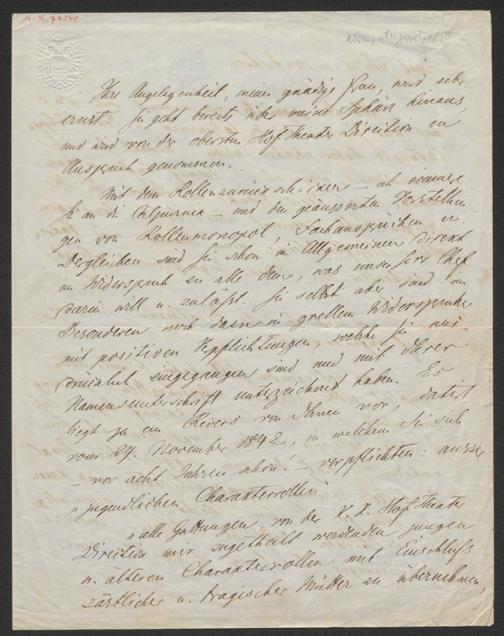 Wien, August 1850
Ihre Angelegenheit, meine gnädige Frau, wird sehr
ernst. Sie geht bereits über meine Sphäre hinaus,
und wird von der obersten Hof Theater Direction in
Anspruch genommen.
Mit dem Rollenzurückschicken – ich erinnere
Sie an die Calpurnia – und den geäusserten Vorstellun
gen von Rollenmonopol, Fachansprüchen u.
Dergleichen sind Sie schon im Allgemeinen direkt
im Widerspruch zu alle dem, was unser Chef
darin will u. zuläßt. Sie selbst aber sind im
Besonderen noch dazu in grellem Widerspruche
mit positiven Verpflichtungen, welche Sie aus-
drücklich eingegangen sind und mit Ihrer
Namensunterschrift unterzeichnet haben. Es
liegt ja ein Revers von Ihnen vor, datirt
vom 24. November 1842, in welchem Sie sich
– vor acht Jahren schon! – verpflichten: ausser
„jugendlichen Charakterrollen“
„alle Gattungen, von der K. K. Hof Theater
Direction mir zugetheilt werdenden jungen
u. älteren Charakterrollen mit Einschluß
zärtlicher u. tragischer Mütter zu übernehmen,